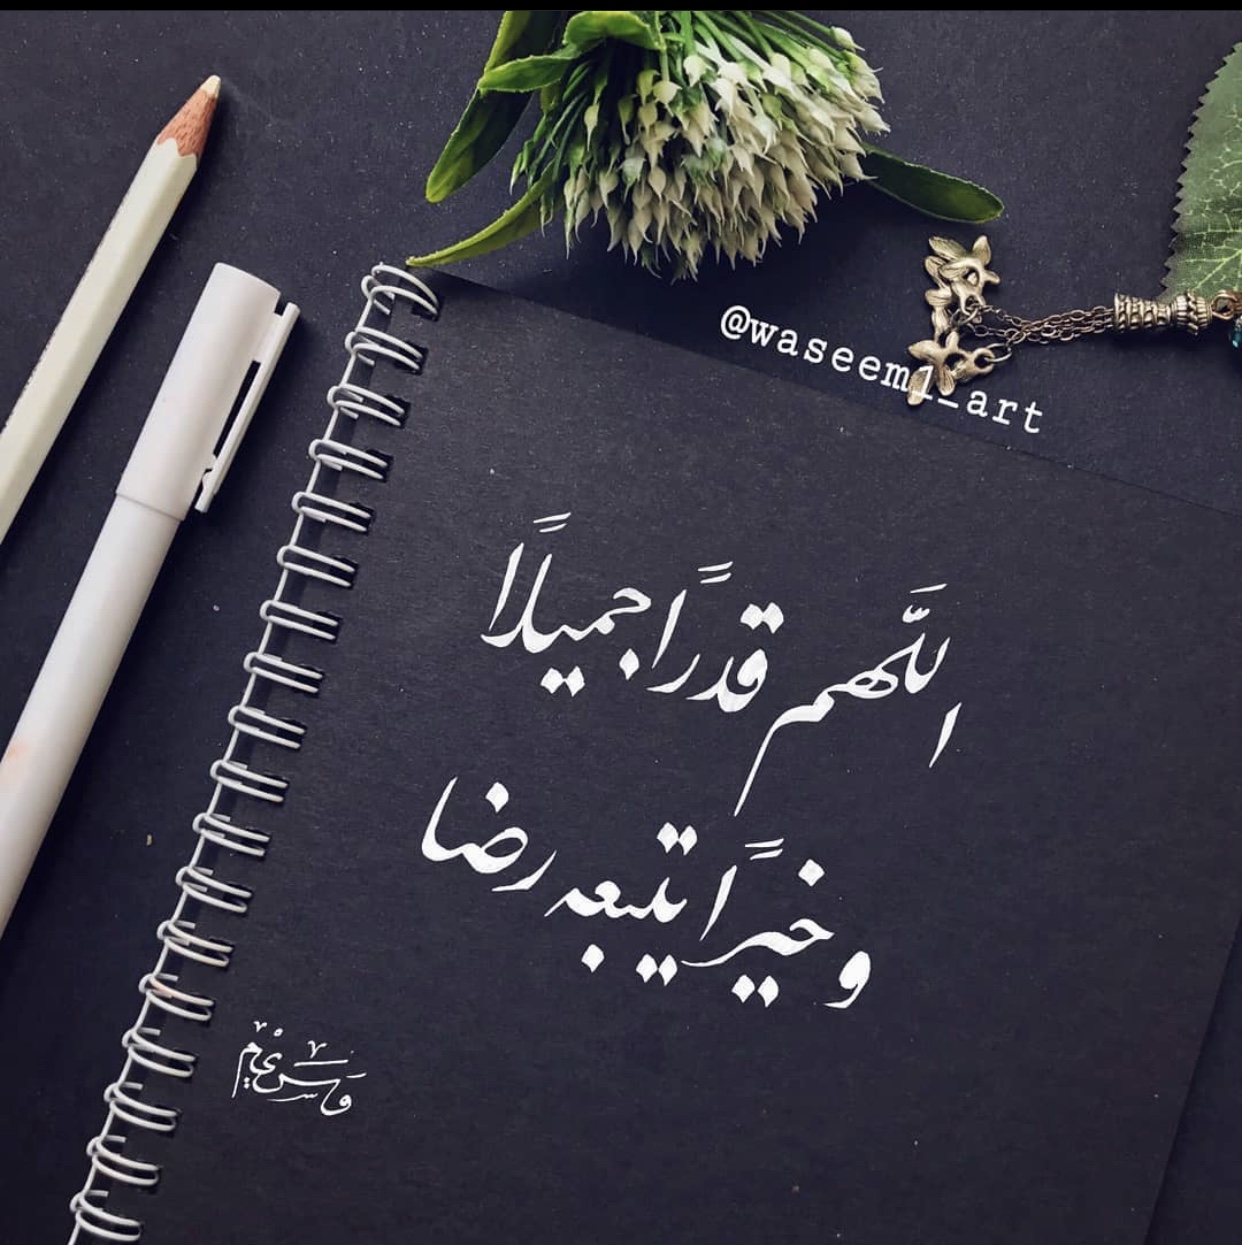 @waseem1_art
اللّهم قدرًا جميلًا
وخيرًا يتبعه رضا